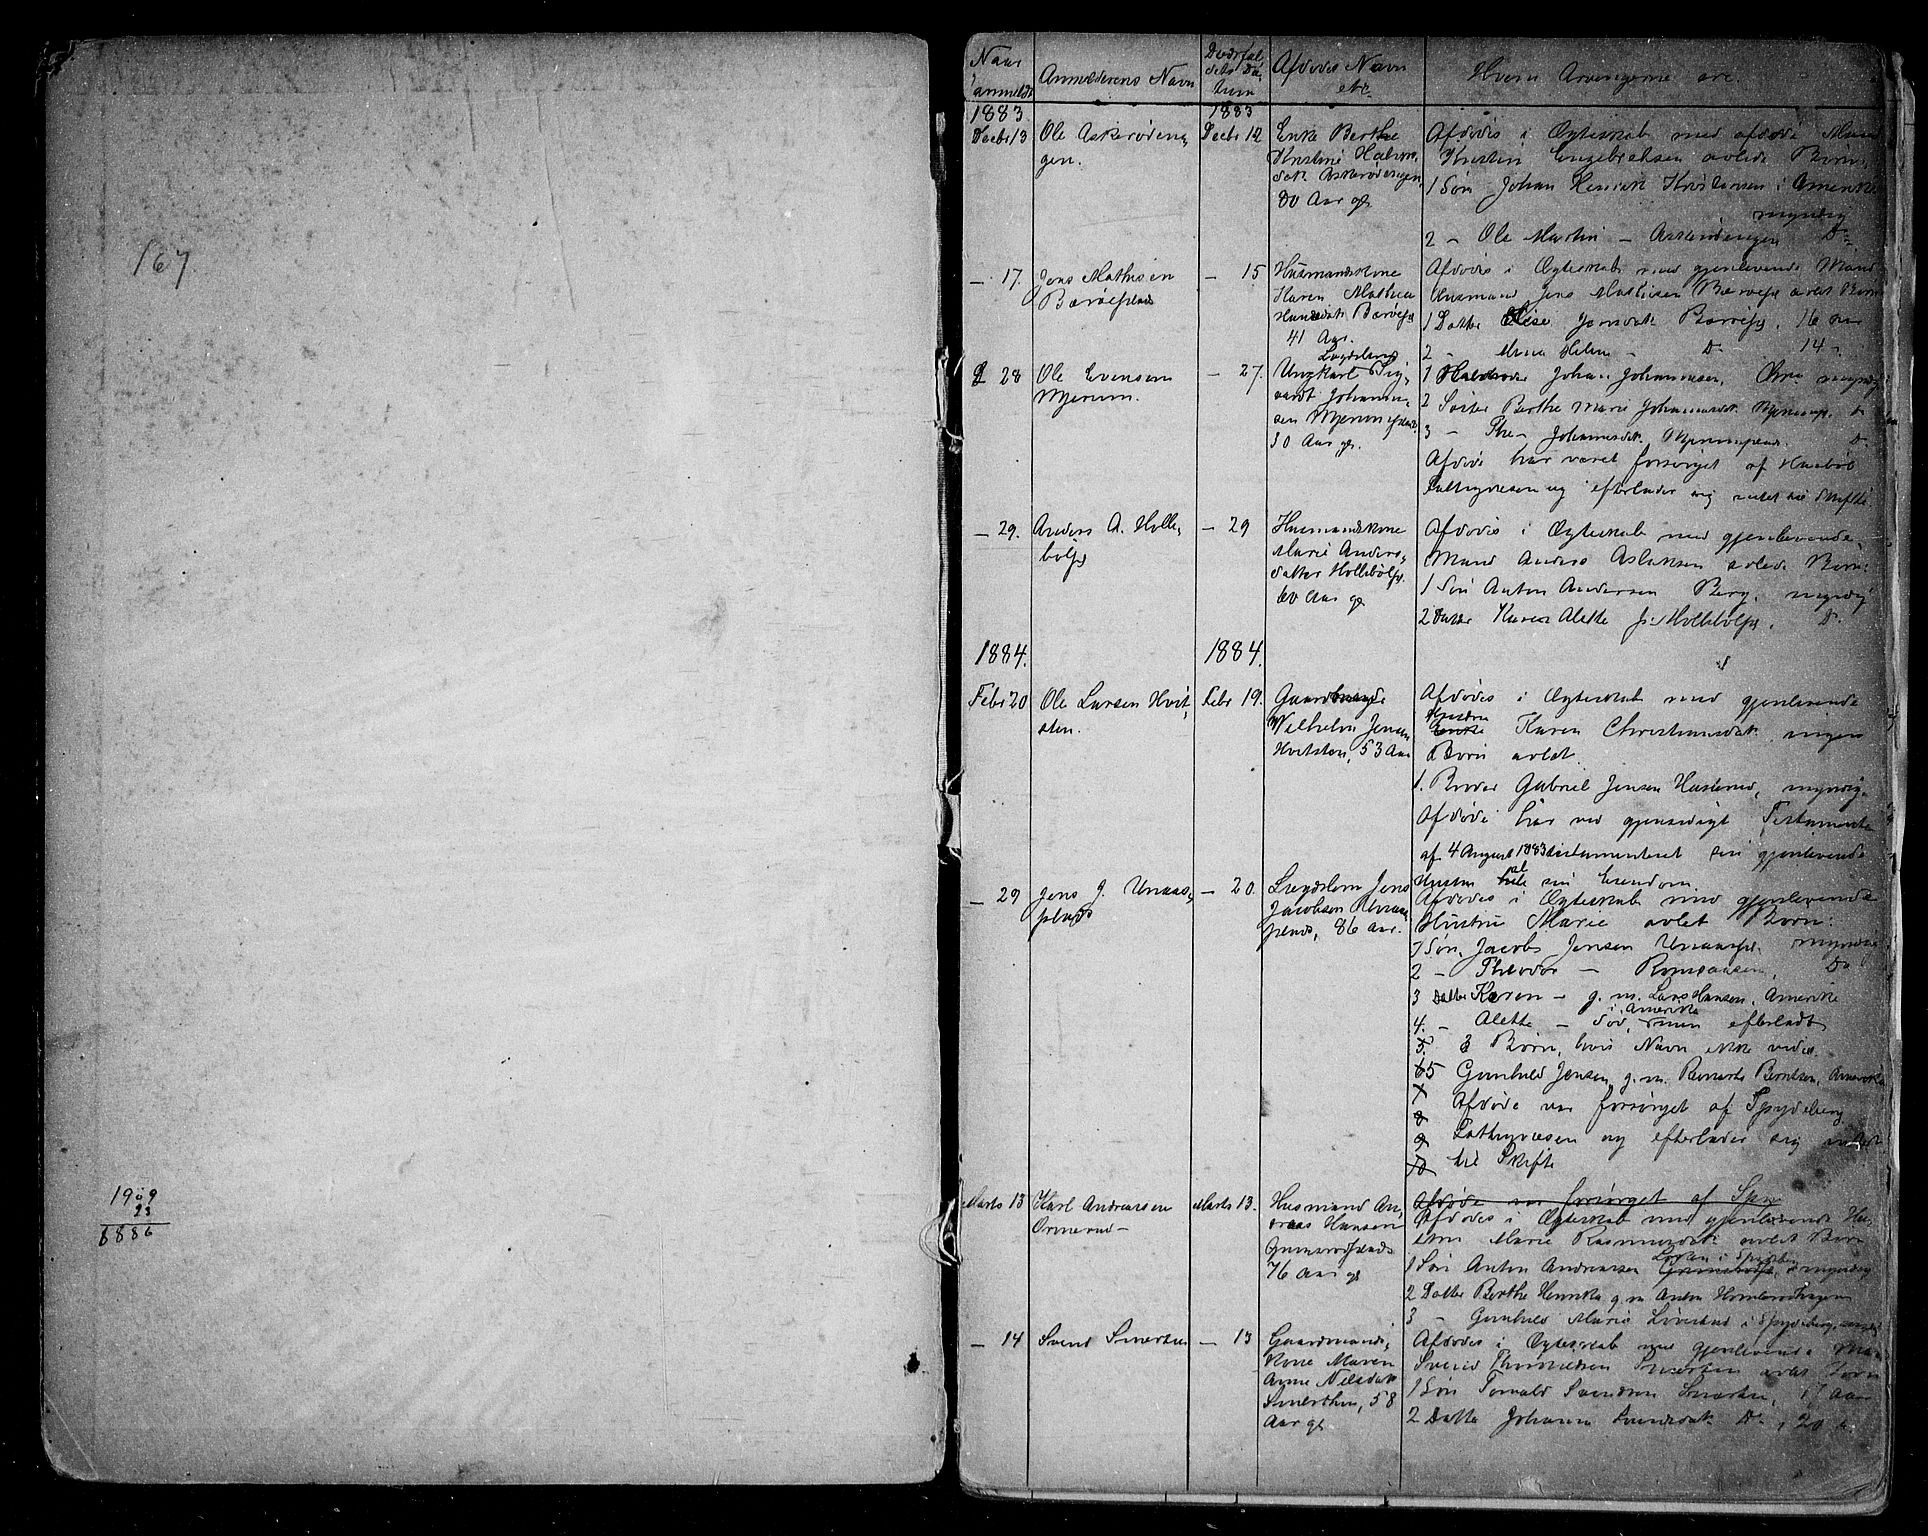 167
1909
23
1886
Naar anmeldt
Anmelderens Navn
Dødsfaldets Datum
Afdødes Navn etc.
Hvem Arvingerne ere
1883
1883
Decbr 13
Ole Askerøden,
gen.
Decbr 12
Enke Berthe
Kristine
Askerødengen,
80 Aar gl.
Afdødes i Ægteskab med afdøde Mand
Kristen Engebrethsen avlede Børn:
1 Søn Johan Henrik Kristensen i Amerika
myndig
2 — Ole Martin — Askerødengen Do
— 17.
Jens Mathisen
Bærøepland
— 15
Husmandskone
Karen Mathea
Hansdatr
41 Aar.
Afdødes i Ægteskab med gjenlevende Mand
Husmand Jens Mathisen avlet Børn
1 Datter Elise Jensdatr 16 Aar
2 — Helene — Do 14 —
28
Ole Evensen
Mjerum.
— 27.
Lægdslem
Ungkarl Sig,
vardt Johannes,
sen
30 Aar gl.
1 Johan Johannesen, myndig
2 Søster Berthe Marie Johannesdatr D
3 — Johannesdatr D
Afdøde har været forsørget af
Fattigvæsen og efterlader sig intet til Skifte
— 29.
Anders A. Holle,
bølpl
— 29
Husmandskone
Marie Anders,
datter Hollebølpl.
60 Aar gl
Afdødes i Ægteskab med gjenlevende
Mand Anders Aslaksen avlede Børn:
1 Søn Anton Andersen Berg, myndig
2 Datter Karen Alette Hollebølpl. Do
1884.
1884.
Febr 20
Ole Larsen Hvit,
sten.
Febr 19.
Gaardbruger
Wilhelm Jensen
Hvitsten, 53 Aar
Afdødes i Ægteskab med gjenlevende
Hustru
Enke Karen Christiansdatr ingen
Børn avlet.
1. Broder Gabriel Jensen myndig.
Afdøde har ved gjensidigt Testamente
af 4 August 1883 testamenteret sin gjenlevende
Hustru al sin Eiendom.
— 29
Jens J. Unaas,
plads
— 20.
Lægdslem Jens
Jacobsen Unaas
plads, 86 Aar.
Afdødes i Ægteskab med gjenlevende
Hustru Marie avlet Børn:
1 Søn, Jacob Jensen Unaaspl. myndig
2 — Theodor — Do
3 Datter Karen — g. m. Lars Hansen, Amerika
i Amerika
4. — Alette — død, men efterladt
5. 3 Børn, hvis Navn ikke vides.
6 5 Gunhild Jensen, g. m. Berntsen, Amerika
7
Afdøde var forsørget af Spydeberg
8
9 Fattigvæsen og efterlader sig intet
10 til Skifte
Marts 13
Karl Andreassen
Ormerud —
Marts 13.
Husmand An,
dreas Hansen
76 Aar gl
Afdøde var forsørget af Spy
Afdødes i Ægteskab med gjenlevende Hu
stru Marie Rasmusdatr avlet Børn
i Spydeberg
1 Søn Anton Andreassen myndig
2 Datter Berthe Henrikke g m Anton
3 — Gunhild Marie Løvestad i Spydeberg,
— 14
Svend Smerten
— 13
Gaardmands,
kone Maren
Anne Nilsdatr
Smerthen, 58
Aar gl
Afdødes i Ægteskab med gjenlevende Ma
Svend Thorvaldsen Smerten avlet Børn
1 Søn Torvald Svendsen Smerten, 17 Aar
2 Datter Johanne Svendsdatr Do, 20 —